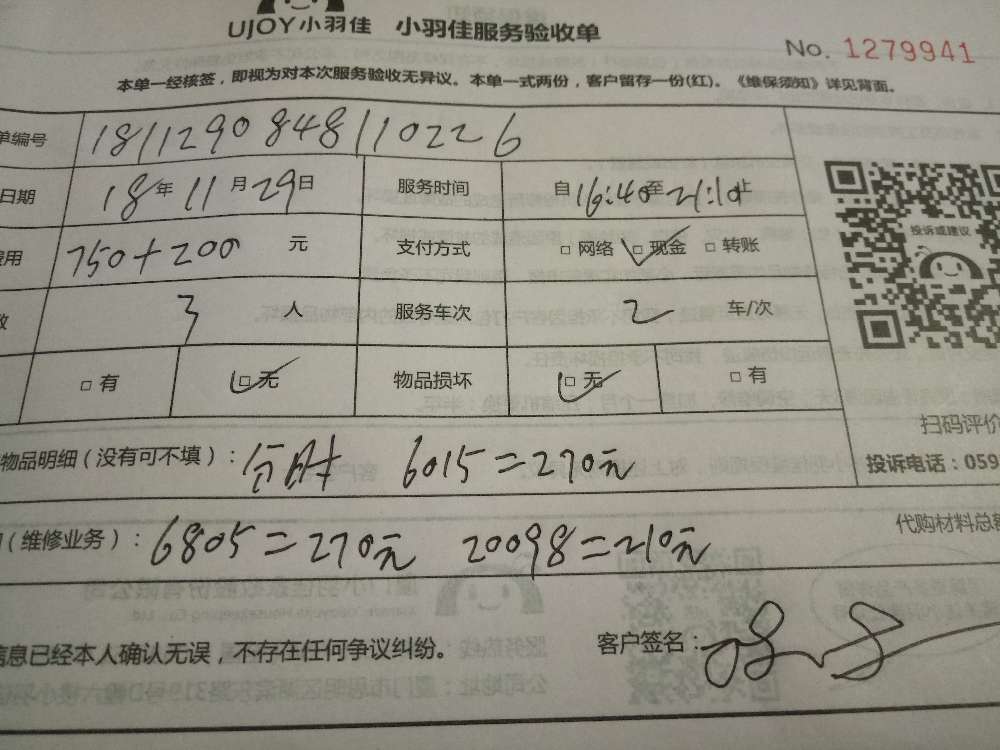 UJOY小羽佳 小羽佳服务验收单
No. 1279941
本单一经核签，即视为对本次服务验收无异议。本单一式两份，客户留存一份(红)。《维保须知》详见背面。
单编号 181129084811022 6
日期 18年 11月 29日 服务时间 自16:40至21:10止
费用 750+200 元 支付方式 □网络 □现金 □转账
数 3 人 服务车次 2 车/次
□有 □无 物品损坏 □无 □有
投诉或建议
扫码评价
物品明细（没有可不填）： 分时 6015=270元
投诉电话：059
（维修业务）： 6805=270元 20098=210元
代购材料总
信息已经本人确认无误，不存在任何争议纠纷。 客户签名：